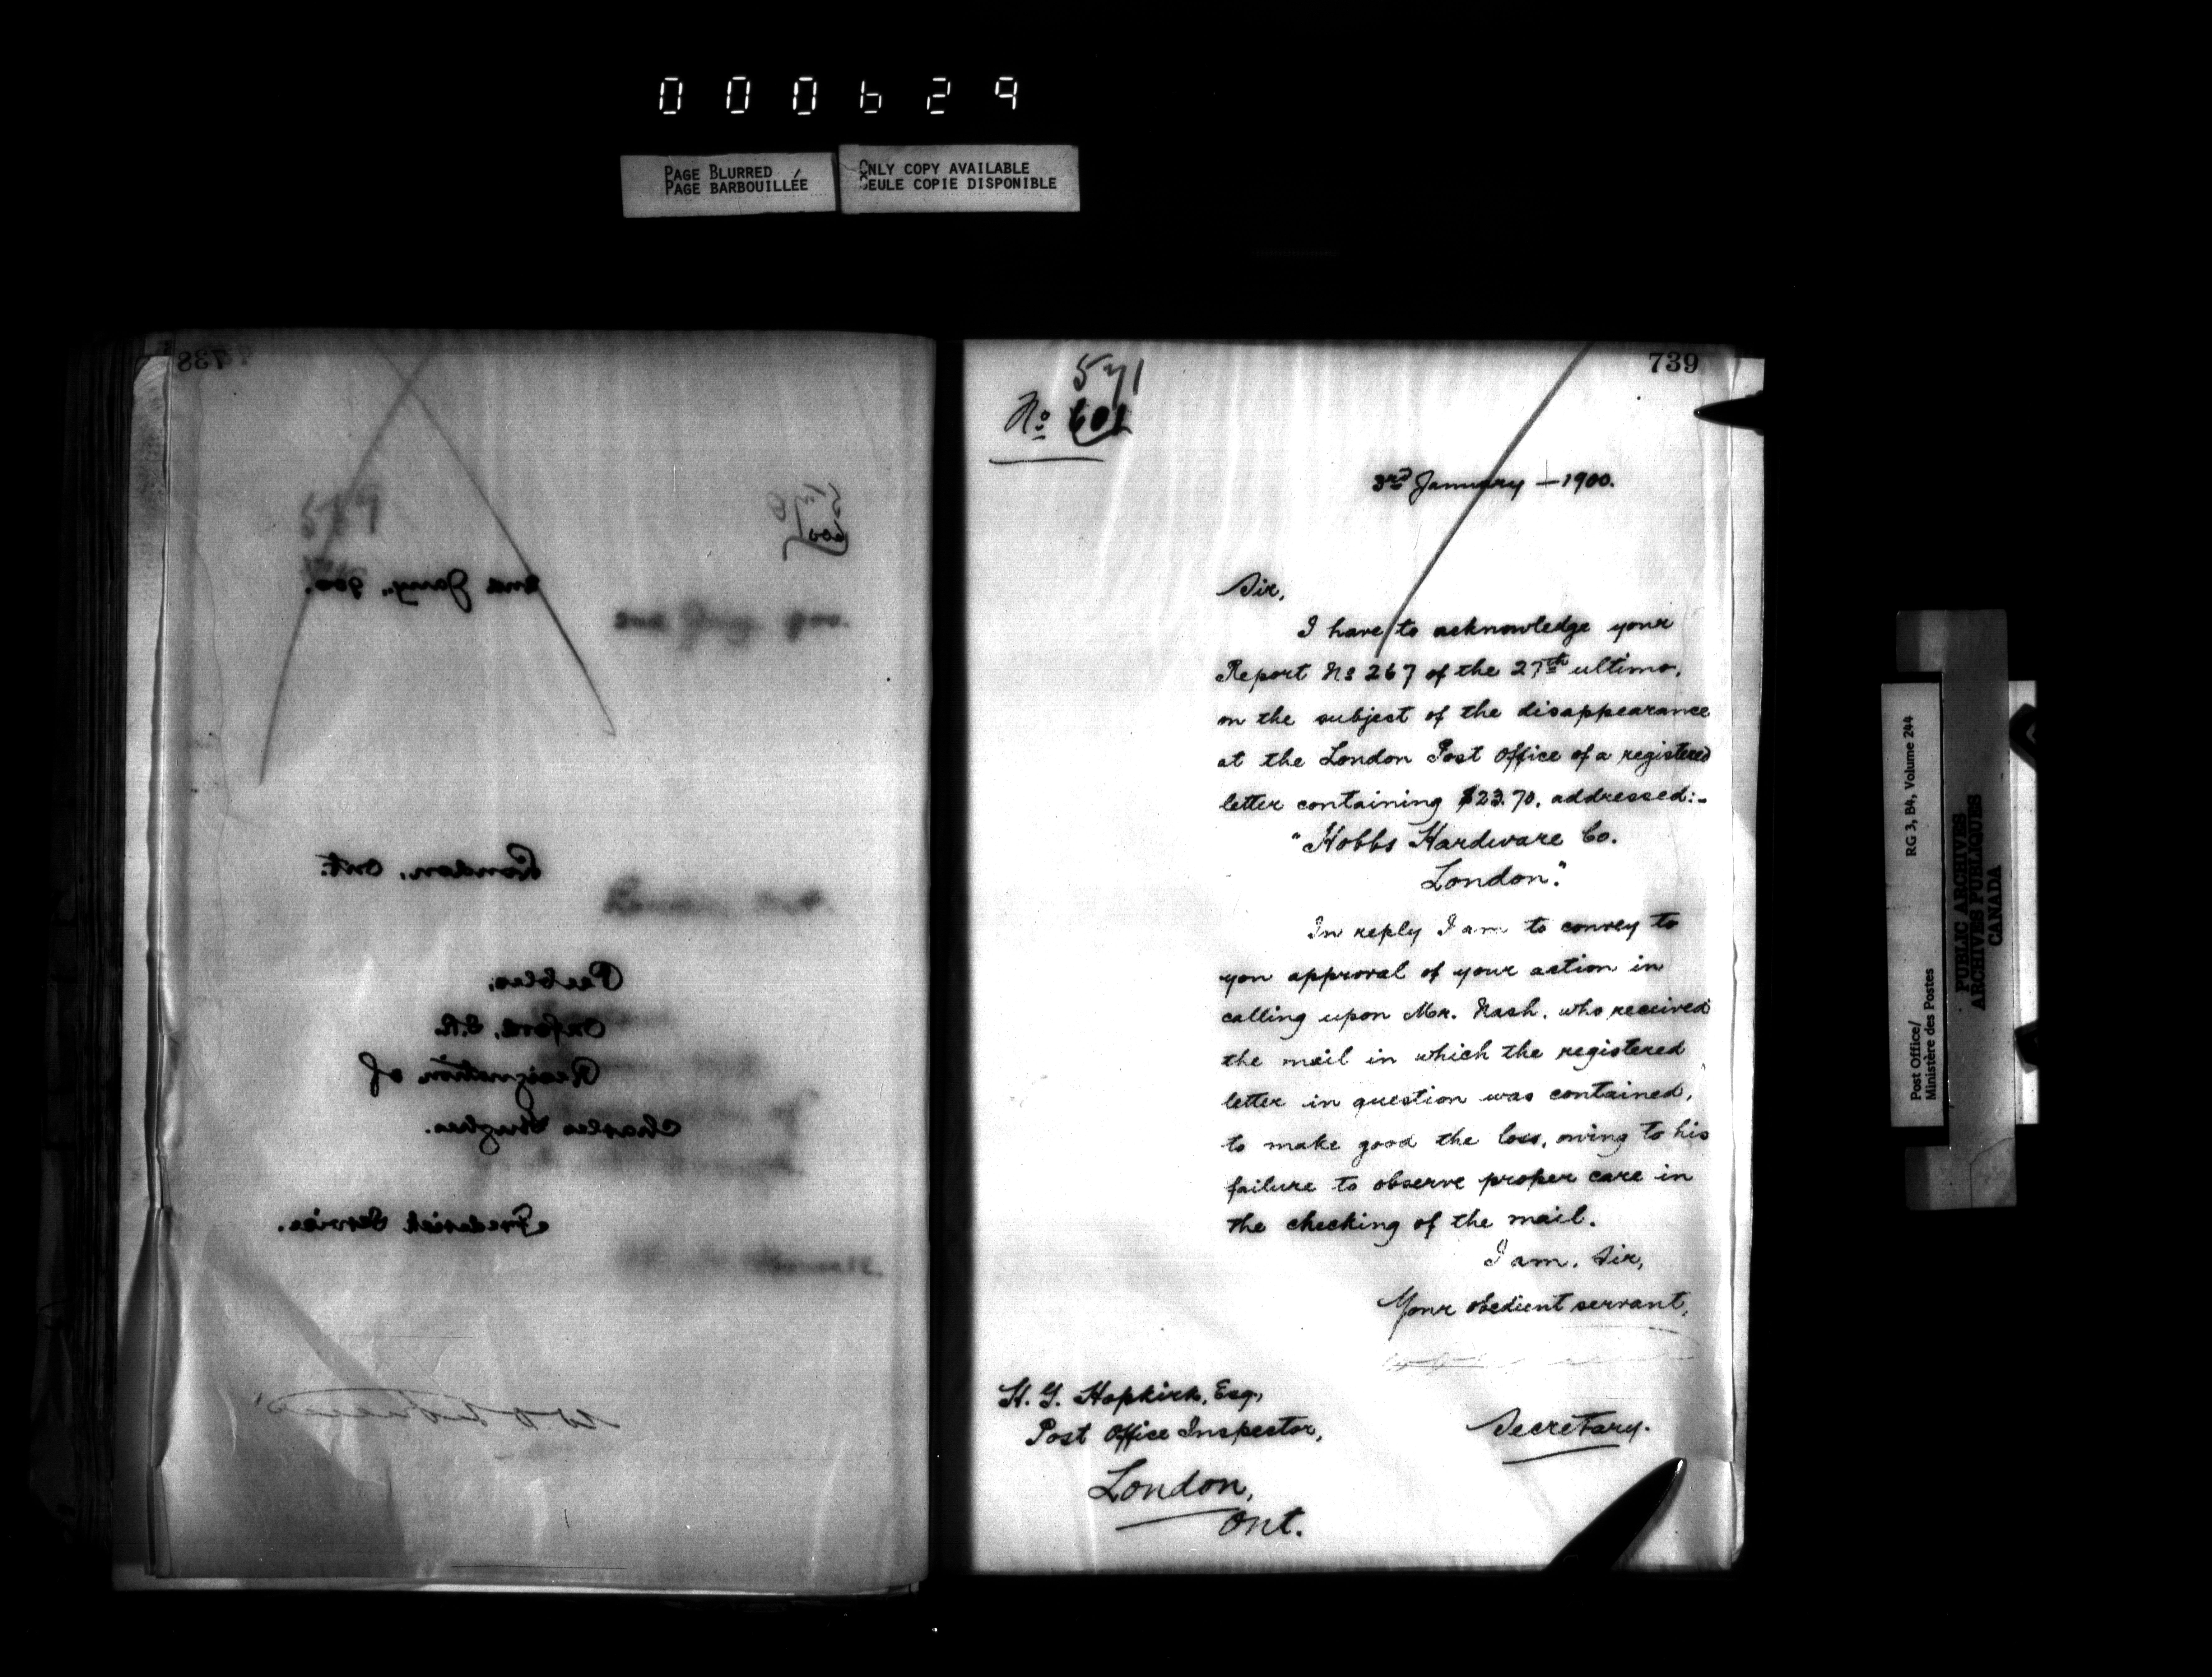 000629
PAGE BLURRED
PAGE BARBOUILLÉE
ONLY COPY AVAILABLE
SEULE COPIE DISPONIBLE
738
2nd Jany, 900.
2nd Jany 900.
London, Ont.
London, Ont.
Peebles,
Oxford, S.R.
Resignation of
Charles Hughes.
Frederick Service.
739
571
No 601
3rd January — 1900.
Sir,
I have to acknowledge your
Report No 267 of the 27th ultimo,
on the subject of the disappearance
at the London Post Office of a registered
letter containing $23.70, addressed:-
"Hobbs Hardware Co.
London."
In reply I am to convey to
you approval of your action in
calling upon Mr. Nash, who received
the mail in which the registered
letter in question was contained,
to make good the loss, owing to his
failure to observe proper care in
the checking of the mail.
I am, Sir,
Your obedient servant,
Secretary.
H. G. Hopkirk, Esq.,
Post Office Inspector,
London,
Ont.
Post Office/
Ministère des Postes
RG 3, B4, Volume 244
PUBLIC ARCHIVES
ARCHIVES PUBLIQUES
CANADA